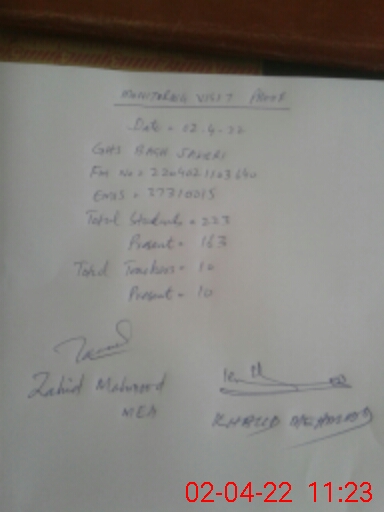 MONITORING VISIT PROOF
Date = 02.4.22
GHS BAGH
Fm No = 2204021103640
EMIS = 37310015
Total Students = 223
Present = 163
Total Teachers = 10
Present = 10
Zahid Mahmood
MEA
KHALID MEHMOOD
02-04-22 11:23